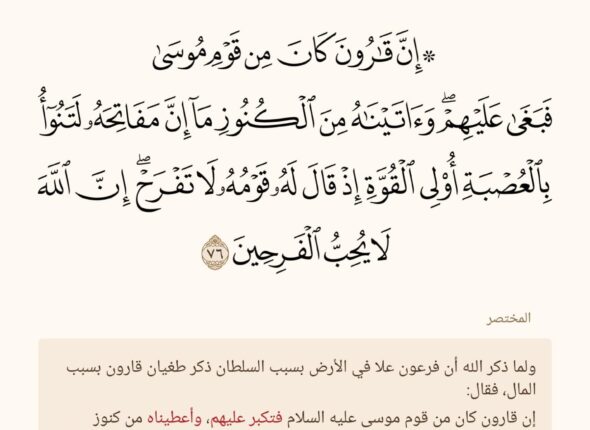 ۞إِنَّ قَـٰرُونَ كَانَ مِن قَوۡمِ مُوسَىٰ
فَبَغَىٰ عَلَيۡهِمۡۖ وَءَاتَيۡنَـٰهُ مِنَ ٱلۡكُنُوزِ مَآ إِنَّ مَفَاتِحَهُۥ لَتَنُوٓأُ
بِٱلۡعُصۡبَةِ أُوْلِى ٱلۡقُوَّةِ إِذۡ قَالَ لَهُۥ قَوۡمُهُۥ لَا تَفۡرَحۡۖ إِنَّ ٱللَّهَ
لَا يُحِبُّ ٱلۡفَرِحِينَ ٧٦
المختصر
ولما ذكر الله أن فرعون علا في الأرض بسبب السلطان ذكر طغيان قارون بسبب
المال، فقال:
إن قارون كان من قوم موسى عليه السلام فتكبر عليهم، وأعطيناه من كنوز